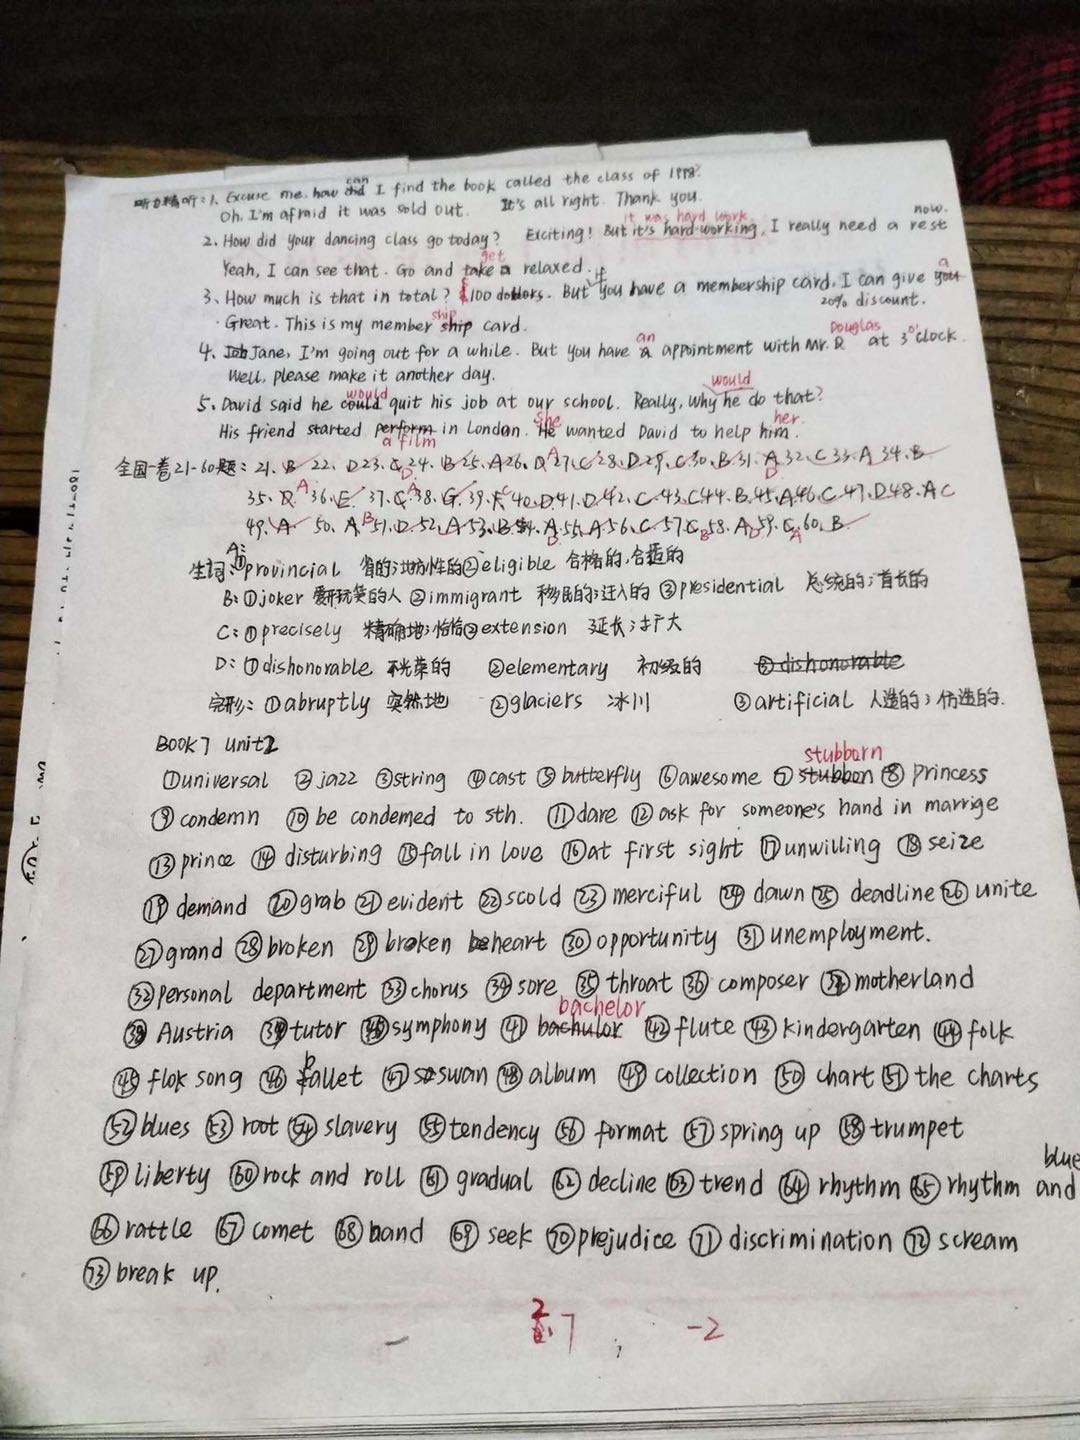 听力精听:1. Excuse me. how can I find the book called the class of 1998?
Oh. I'm afraid it was sold out. It's all right. Thank you.
it was hard work now.
2. How did your dancing class go today? Exciting! But it's hard-working, I really need a rest
get
Yeah, I can see that. Go and take a relaxed.
if a
3. How much is that in total? $100 dollors. But you have a membership card. I can give you
20% discount.
ship
Great. This is my member ship card.
an Douglas o'
4. Jane, I'm going out for a while. But you have a appointment with Mr. D at 3 clock.
Well, please make it another day.
would would
5. David said he could quit his job at our school. Really, why he do that?
She her.
His friend started perform in London. He wanted David to help him.
a film
全国一卷21-60题: 21. B 22. D 23. C 24. B 25. A 26. D 27. C 28. D 29. C 30. B 31. A 32. C 33. A 34. B
35. D 36. E 37. C 38. G 39. F 40. D 41. D 42. C 43. C 44. B 45. A 46. C 47. D 48. A C
49. A 50. A 51. D 52. A 53. B 54. A 55. A 56. C 57. C 58. A 59. C 60. B
生词: A: ①provincial 省的;地方性的 ②eligible 合格的,合适的
B: ①joker 爱开玩笑的人 ②immigrant 移民的;迁入的 ③presidential 总统的;首长的
C: ①precisely 精确地;恰恰 ②extension 延长;扩大
D: ①dishonorable 不光荣的 ②elementary 初级的 ③dishonorable
完形: ①abruptly 突然地 ②glaciers 冰川 ③artificial 人造的;仿造的.
BOOK7 unit2
stubborn
①universal ②jazz ③string ④cast ⑤butterfly ⑥awesome ⑦stubbon ⑧princess
⑨condemn ⑩be condemed to sth. ⑪dare ⑫ask for someone's hand in marrige
⑬prince ⑭disturbing ⑮fall in love ⑯at first sight ⑰unwilling ⑱seize
⑲demand ⑳grab ㉑evident ㉒scold ㉓merciful ㉔dawn ㉕deadline ㉖unite
㉗grand ㉘broken ㉙broken heart ㉚opportunity ㉛unemployment.
㉜personal department ㉝chorus ㉞sore ㉟throat ㊱composer ㊲motherland
bachelor
㊳Austria ㊴tutor ㊵symphony ㊶bachulor ㊷flute ㊸kindergarten ㊹folk
㊺flok song ㊻ballet ㊼swan ㊽album ㊾collection ㊿chart 51 the charts
52 blues 53 root 54 slavery 55 tendency 56 format 57 spring up 58 trumpet
blue
59 liberty 60 rock and roll 61 gradual 62 decline 63 trend 64 rhythm 65 rhythm and
66 rattle 67 comet 68 band 69 seek 70 prejudice 71 discrimination 72 scream
73 break up.
2
7 -2